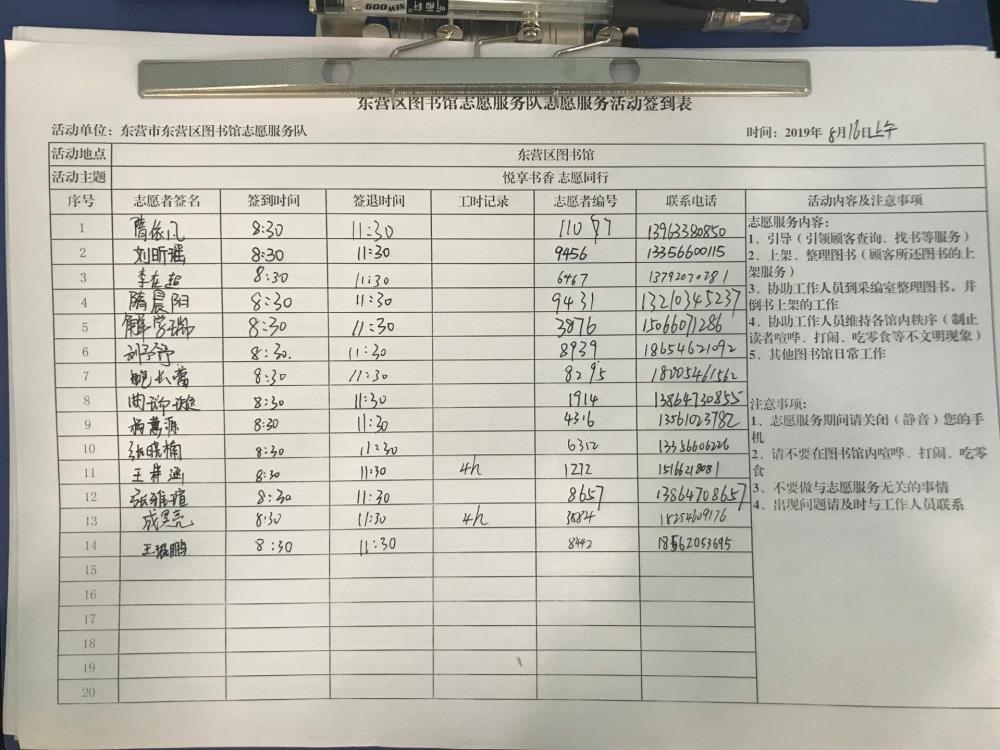 NEW 009
东营区图书馆志愿服务队志愿服务活动签到表
活动单位：东营市东营区图书馆志愿服务队 时间：2019年 8月16日上午
活动地点 东营区图书馆
活动主题 悦享书香 志愿同行
序号 志愿者签名 签到时间 签退时间 工时记录 志愿者编号 联系电话 活动内容及注意事项
1 隋依凡 8:30 11:30 11097 13963380850
2 刘昕瑶 8:30 11:30 9456 13356600115
3 李在超 8:30 11:30 6467 13792070281
4 隋晨阳 8:30 11:30 9431 13210345237
5 解学瑞 8:30 11:30 3876 15066071286
6 刘予婷 8:30. 11:30 8939 18654621092
7 鲍长蕾 8:30 11:30 8295 18005461562
8 8:30 11:30 1914 13864730855
9 杨慧源 8:30 11:30 4316 13561023782
10 张晓楠 8:30 11:30 6312 13356606226
11 王梓涵 8:30 11:30 4h 1272 15166218081
12 张雅瑄 8:30 11:30 8657 13864708657
13 成昊亮 8:30 11:30 4h 3884 18254609176
14 王琨鹏 8:30 11:30 8442 18562053695
15
16
17
18
19
20
志愿服务内容：
1、引导（引领顾客查询、找书等服务）
2、上架、整理图书（顾客所还图书的上
架服务）
3、协助工作人员到采编室整理图书，并
倒书上架的工作
4、协助工作人员维持各馆内秩序（制止
读者喧哗、打闹、吃零食等不文明现象）
5、其他图书馆日常工作
注意事项：
1、志愿服务期间请关闭（静音）您的手
机
2、请不要在图书馆内喧哗、打闹、吃零
食
3、不要做与志愿服务无关的事情
4、出现问题请及时与工作人员联系